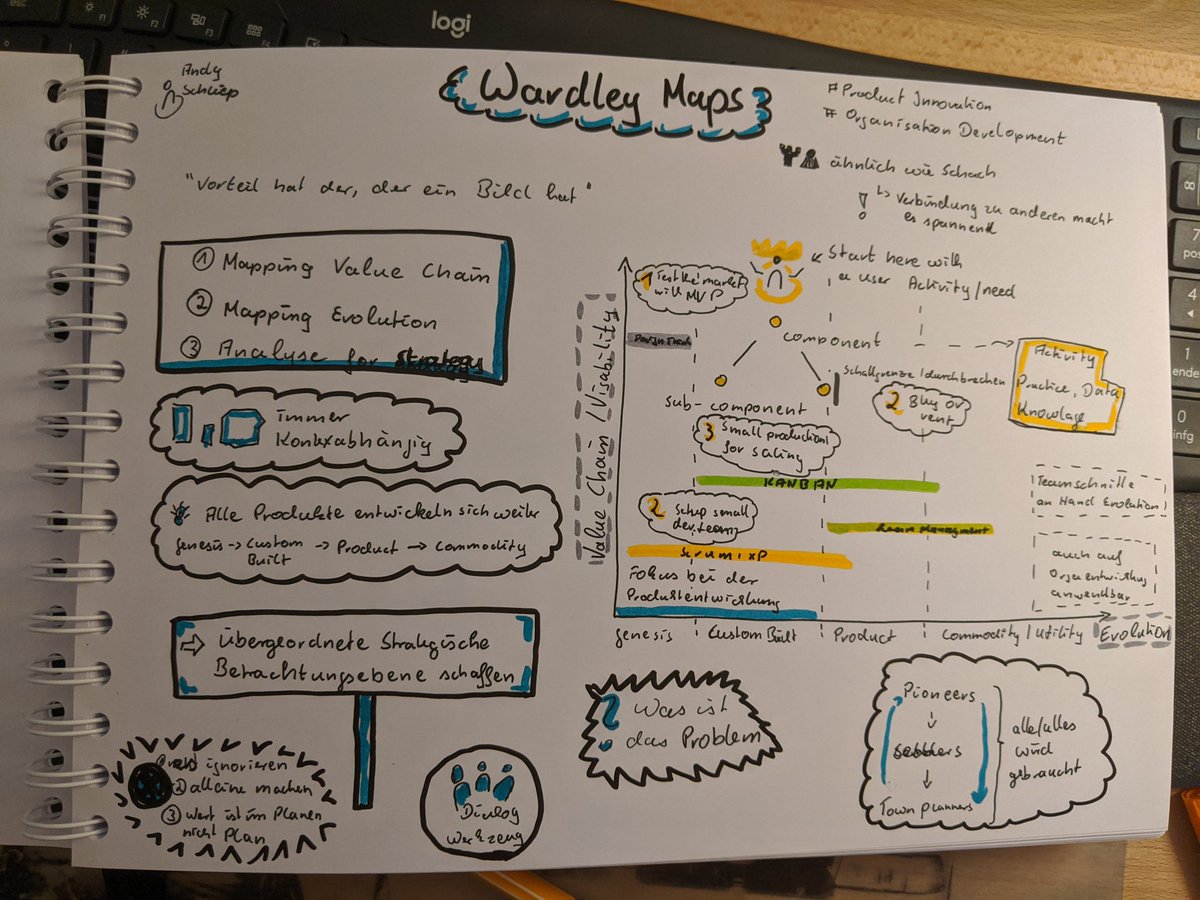 logi
Andy
Schliep
Wardley Maps
#Product Innovation
# Organisation Development
ähnlich wie Schach
↳ Verbindung zu anderen macht
! es spannend
"Vorteil hat der, der ein Bild hat"
① Mapping Value Chain
② Mapping Evolution
③ Analyse for Strategy
immer
Kontexabhängig
Alle Produkte entwickeln sich weiter
genesis → Custom Built → Product → Commodity
⇨ übergeordnete Strategische
Betrachtungsebene schaffen
ignorieren
② alleine machen
③ Wert ist im Planen
nicht Plan
Dialog
Werkzeug
Start here with
a user Activity/need
1 Test the markt
with MVP
Value Chain / Visability
component
Activity
Practice, Data
Knowlage
Schallgrenze/durchbrechen
sub-component
2 Buy or
3 Small production
for scaling
KANBAN
Teamschnitte
an Hand Evolution
2 Setup small
dev. team
Scrum XP
auch auf
Orgaentwicklung
anwendbar
Fokus bei der
Produktentwicklung
genesis
Custom Built
Product
Commodity / Utility
Evolution
? Was ist
das Problem
Pioneers
↓
settlers
↓
Town planners
alle/alles
wird
gebraucht
7
pos
4
1
ende
0
infg
F1
F2
F3